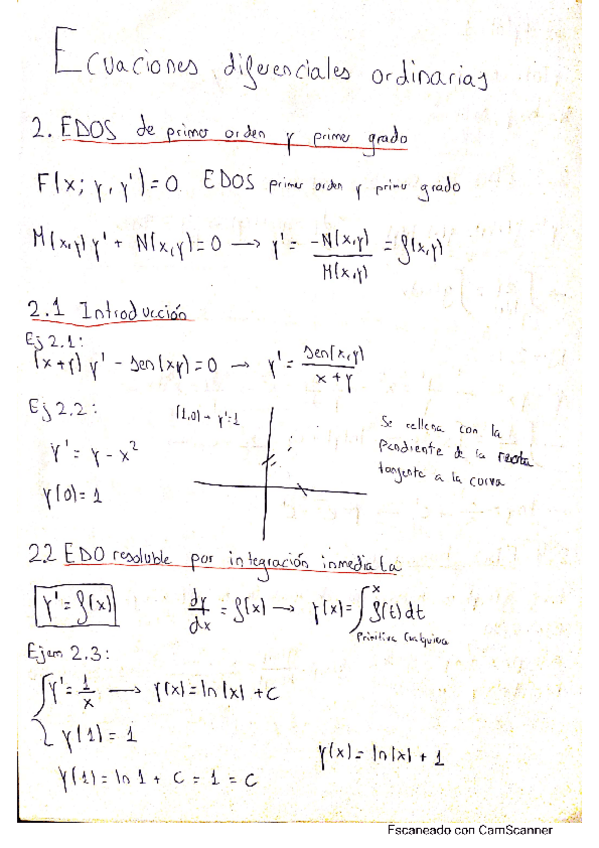 Ecuaciones diferenciales ordinarias
2. EDOS de primer orden y primer grado
F(x; y, y') = 0 EDOS primer orden y primer grado
M(x,y) y' + N(x,y) = 0 → y' = -N(x,y) / M(x,y) = f(x,y)
2.1 Introducción
Ej 2.1:
(x+y) y' - sen(xy) = 0 → y' = sen(x,y) / x+y
Ej 2.2:
(1,0) → y'=1
y' = y - x²
y(0) = 1
Se rellena con la
Pendiente de la recta
tangente a la curva
2.2 EDO resoluble por integración inmediata
y' = f(x)
dy/dx = f(x) → y(x) = ∫ˣ f(t) dt
Primitiva cualquiera
Ejem 2.3:
y' = 1/x → y(x) = ln |x| + c
y(1) = 1
y(x) = ln|x| + 1
y(1) = ln 1 + c = 1 = c
Escaneado con CamScanner